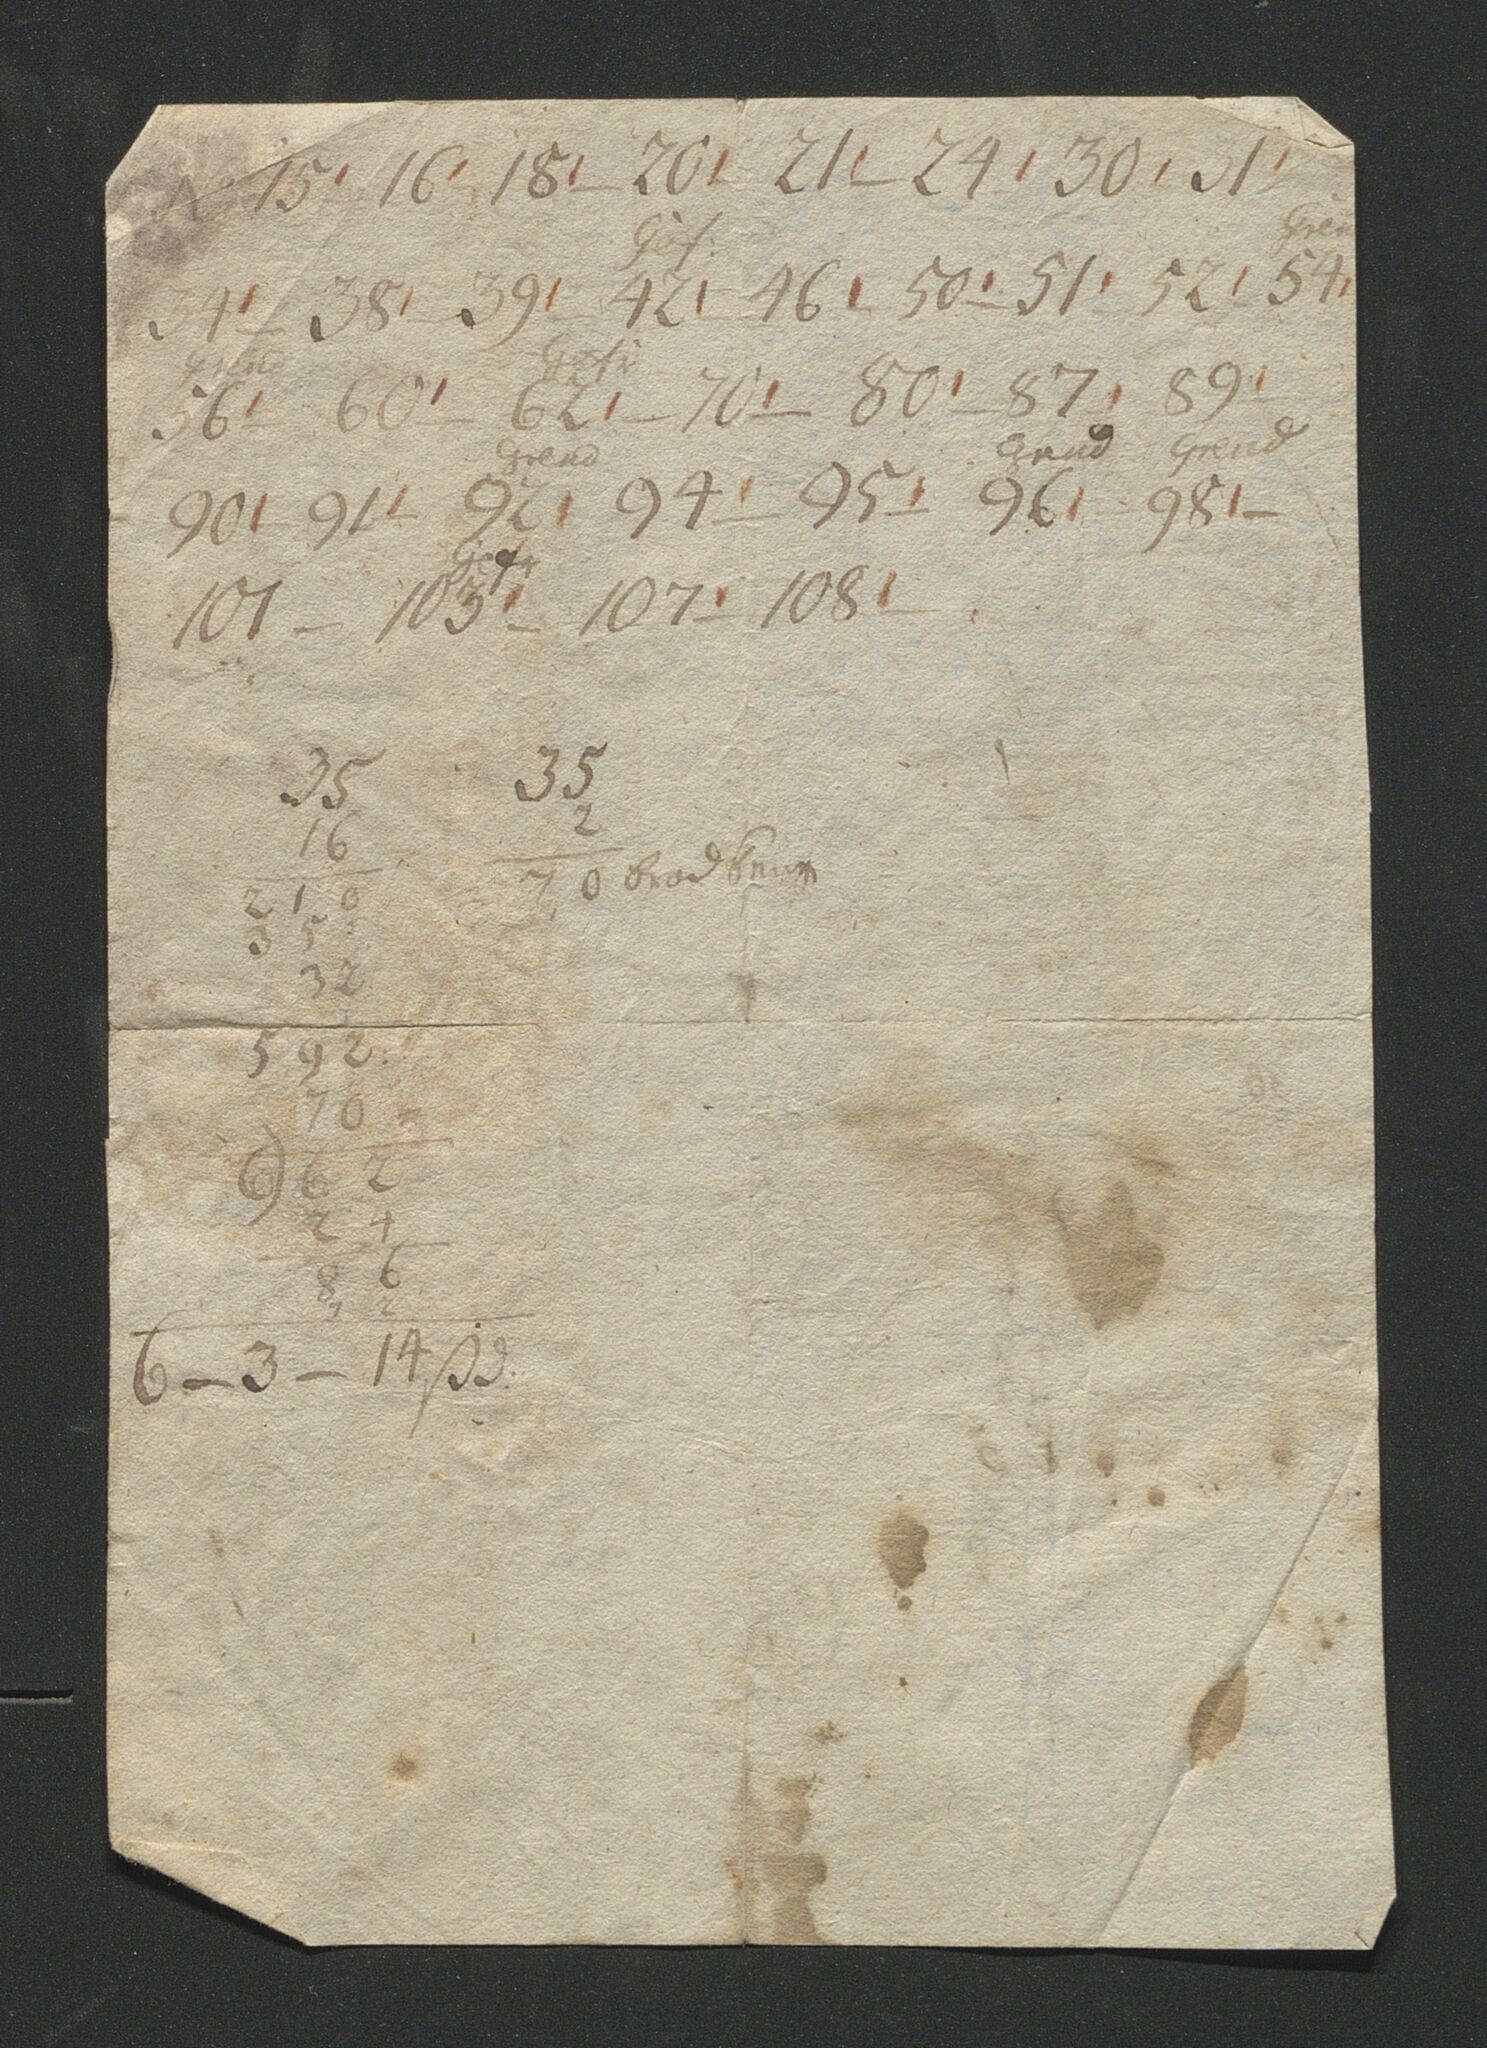 N 15 16 18 - 20 - 21 - 24 - 30 31 -
Gief. Gren
34 - 38 - 39 - 42 - 46 - 50 - 51 52 - 54
Grend
56 - 60 - 62 - 70 - 80 - 87 - 89 -
Grend Grend Grend
90 - 91 - 92 94 - 95 - 96 - 98 -
101 - 103 - 107 - 108 -
35 35
16 2
210 70 brod
35
32
592
70
6) 62
24
86
2
6 - 3 - 14